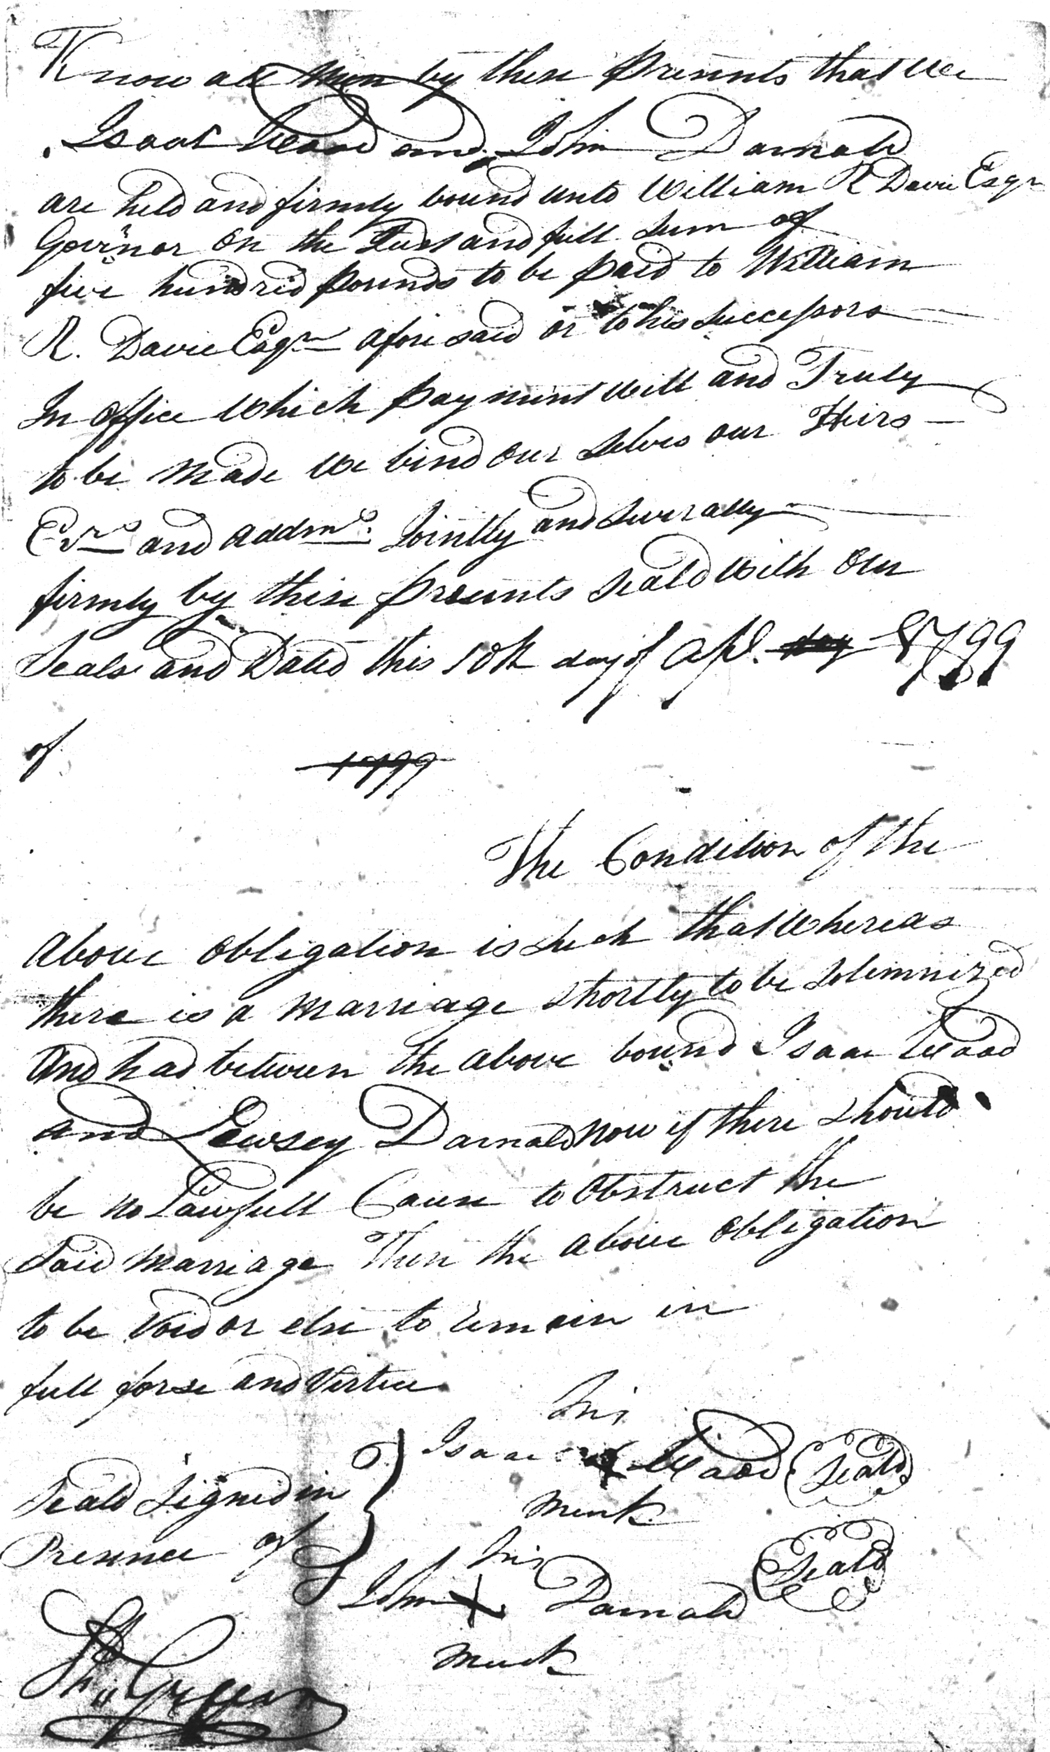 Know all men by these presents that we
Isaac Wood and John Darnald
are held and firmly bound unto William R Davie Esqr
Governor on the and full Sum of
five hundred pounds to be paid to William
R. Davie Esqr afore said or to his Successors
In office which payment will and Truly
to be made we bind our Selves our Heirs
Exrs and addms. Jointly and Severally
firmly by these presents Seald with our
Seals and Dated this 10th day of Apl. day 1799
of 1799
The Condition of the
above obligation is Such that Whereas
there is a marriage Shortly to be Solemnized
and had between the above bound Isaac Wood
and Lewsey Darnald now if there Should
be no Lawfull Cause to obstruct the
Said marriage Then the above obligation
to be Void or else to remain in
full forse and Vertue
his
Isaac X Wood Seald
Seald Signed in
mark
Presence of
his
John X Darnald Seald
mark